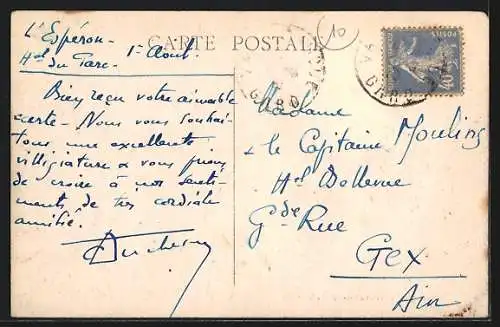 L'Espérou
Hel du Parc
1er Aout
CARTE POSTALE
Bien reçu votre aimable
carte - Nous vous souhai-
tons une excellente
villégiature & vous prions
de croire à nos senti-
ments de très cordiale
amitié.
Madame
& le Capitaine Moulins
Hel Bellevue
Gde Rue
Gex
Ain
GARD
GARD
POSTES
40c